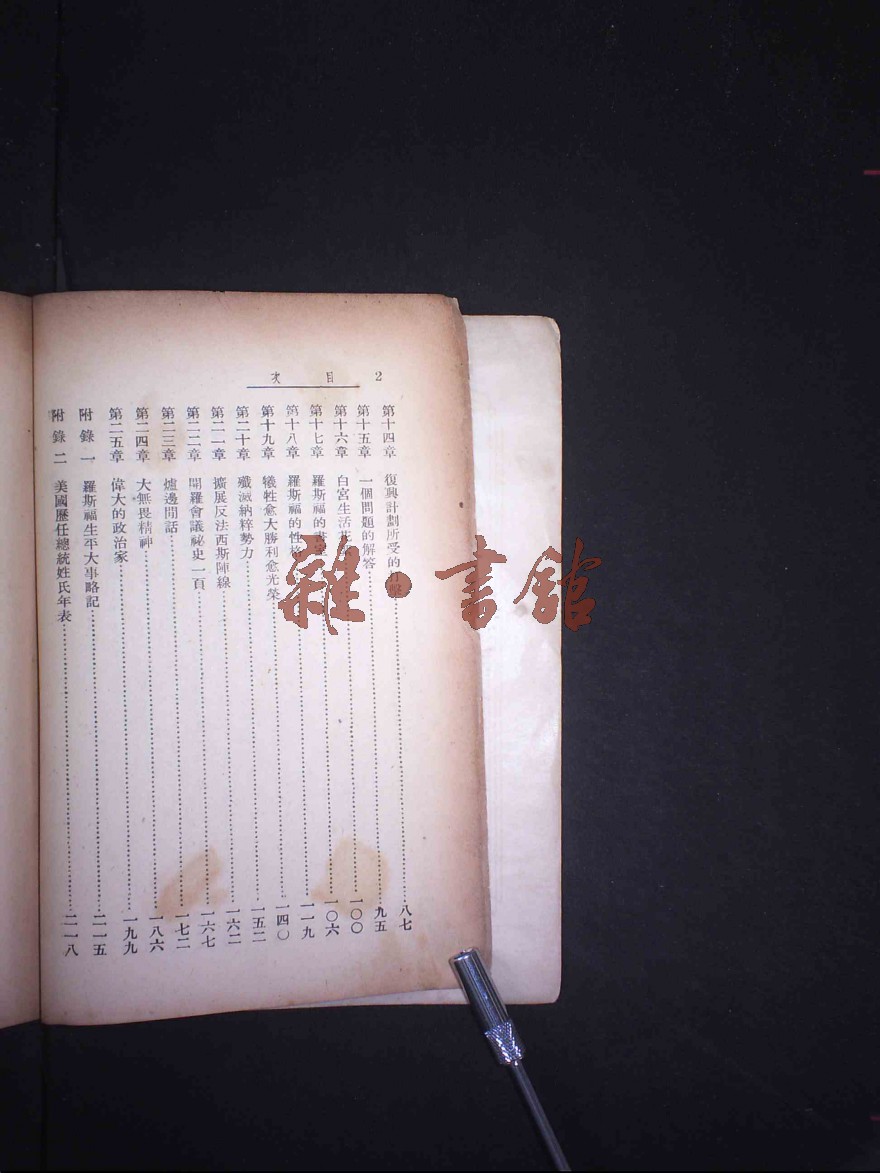 2 目次
第十四章 復興計劃所受的打擊……八七
第十五章 一個問題的解答……九五
第十六章 白宮生活……一〇〇
第十七章 羅斯福的……一〇六
第十八章 羅斯福的性格……一一九
第十九章 犧牲愈大勝利愈光榮……一四〇
第二十章 殲滅納粹勢力……一五二
第二一章 擴展反法西斯陣線……一六二
第二二章 開羅會議祕史一頁……一六七
第二三章 爐邊閒話……一七二
第二四章 大無畏精神……一八六
第二五章 偉大的政治家……一九九
附錄一 羅斯福生平大事略記……二一五
附錄二 美國歷任總統姓氏年表……二一八
雜·書館